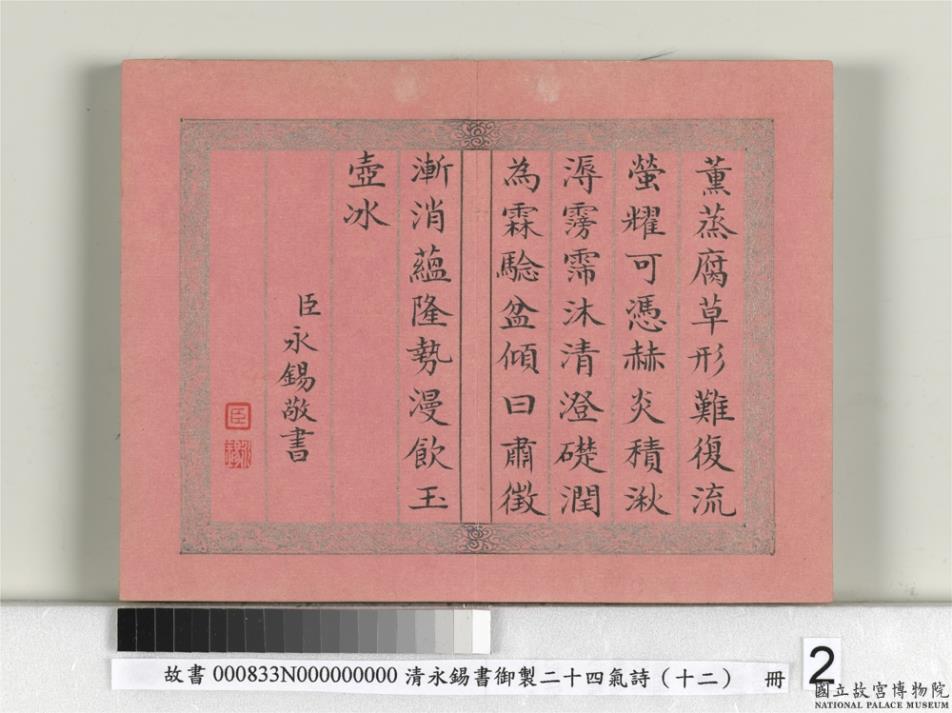 薰蒸腐草形難復流
螢耀可憑赫炎積湫
溽霶霈沐清澄礎潤
為霖騐盆傾曰肅徴
漸消蘊隆勢漫飲玉
壺冰
臣永錫敬書
臣
永錫
故書 000833N000000000 清永錫書御製二十四氣詩（十二） 冊
2
國立故宮博物院
NATIONAL PALACE MUSEUM